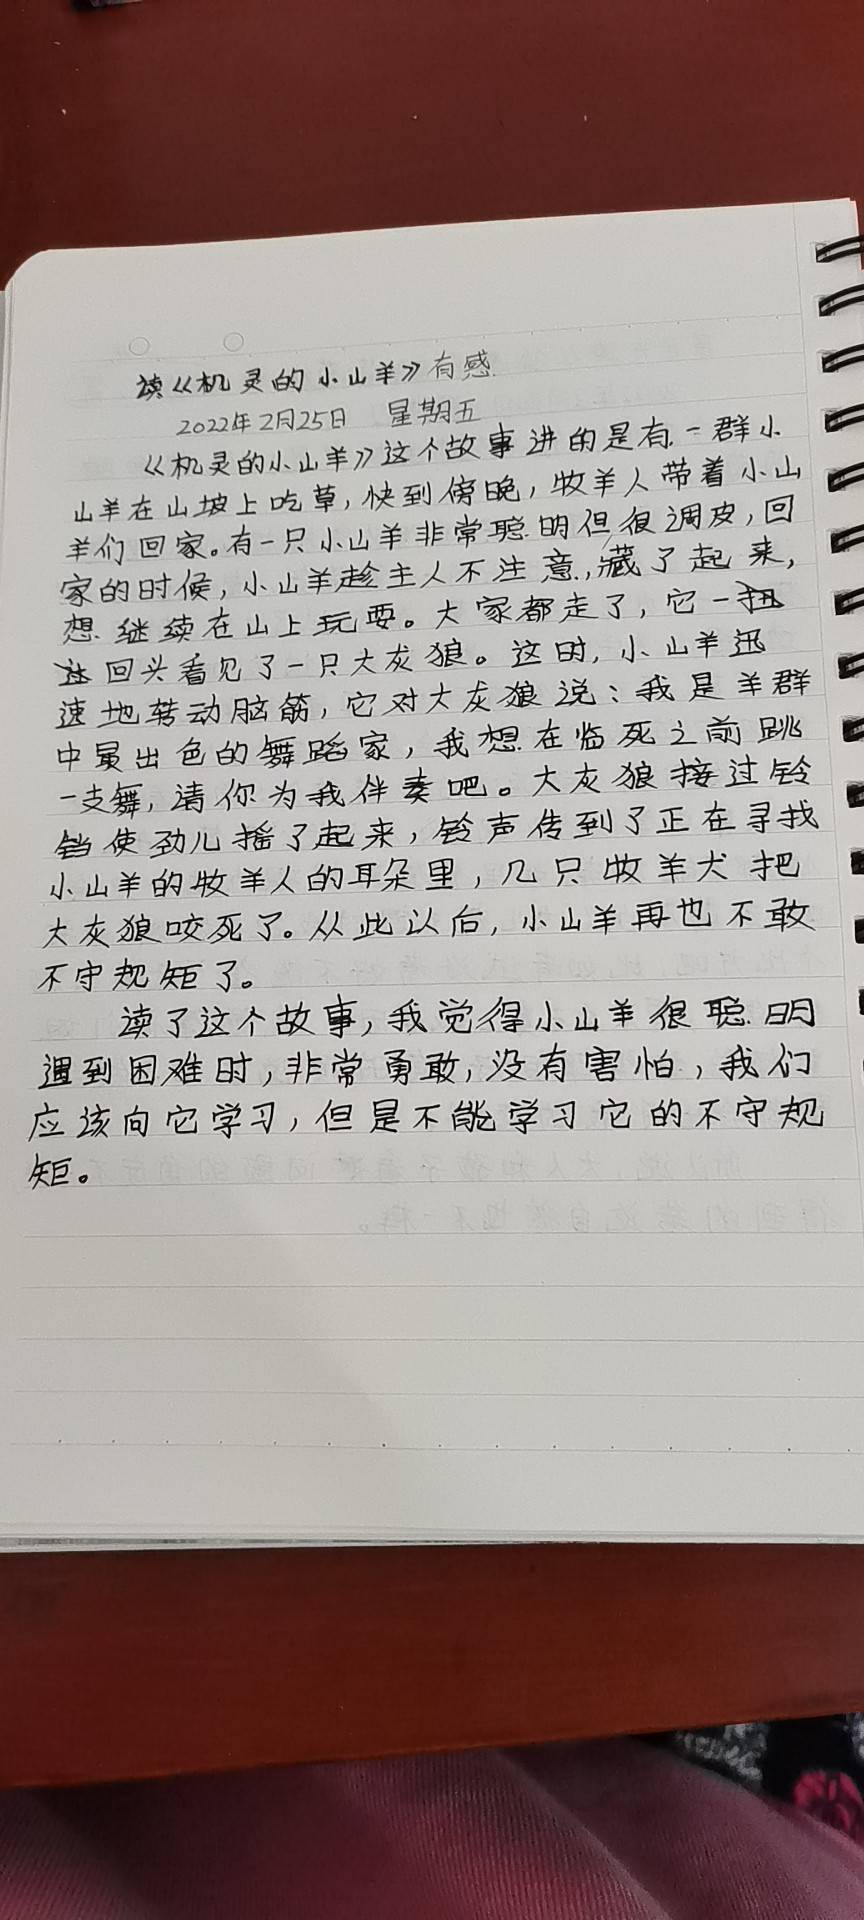 读《机灵的小山羊》有感
2022年2月25日 星期五
《机灵的小山羊》这个故事进的是有一群小
山羊在山坡上吃草,快到傍晚,牧羊人带着小山
羊们回家。有一只小山羊非常聪明但很调皮,回
家的时候,小山羊趁主人不注意,藏了起来,
想继续在山上玩耍。大家都走了,它一扭
回头看见了一只大灰狼。这时,小山羊迅
速地转动脑筋,它对大灰狼说:我是羊群
中最出色的舞蹈家,我想在临死之前跳
一支舞,请你为我伴奏吧。大灰狼接过铃
铛使劲儿摇了起来,铃声传到了正在寻找
小山羊的牧羊人的耳朵里,几只牧羊犬把
大灰狼咬死了。从此以后,小山羊再也不敢
不守规矩了。
读了这个故事,我觉得小山羊很聪明
遇到困难时,非常勇敢,没有害怕,我们
应该向它学习,但是不能学习它的不守规
矩。